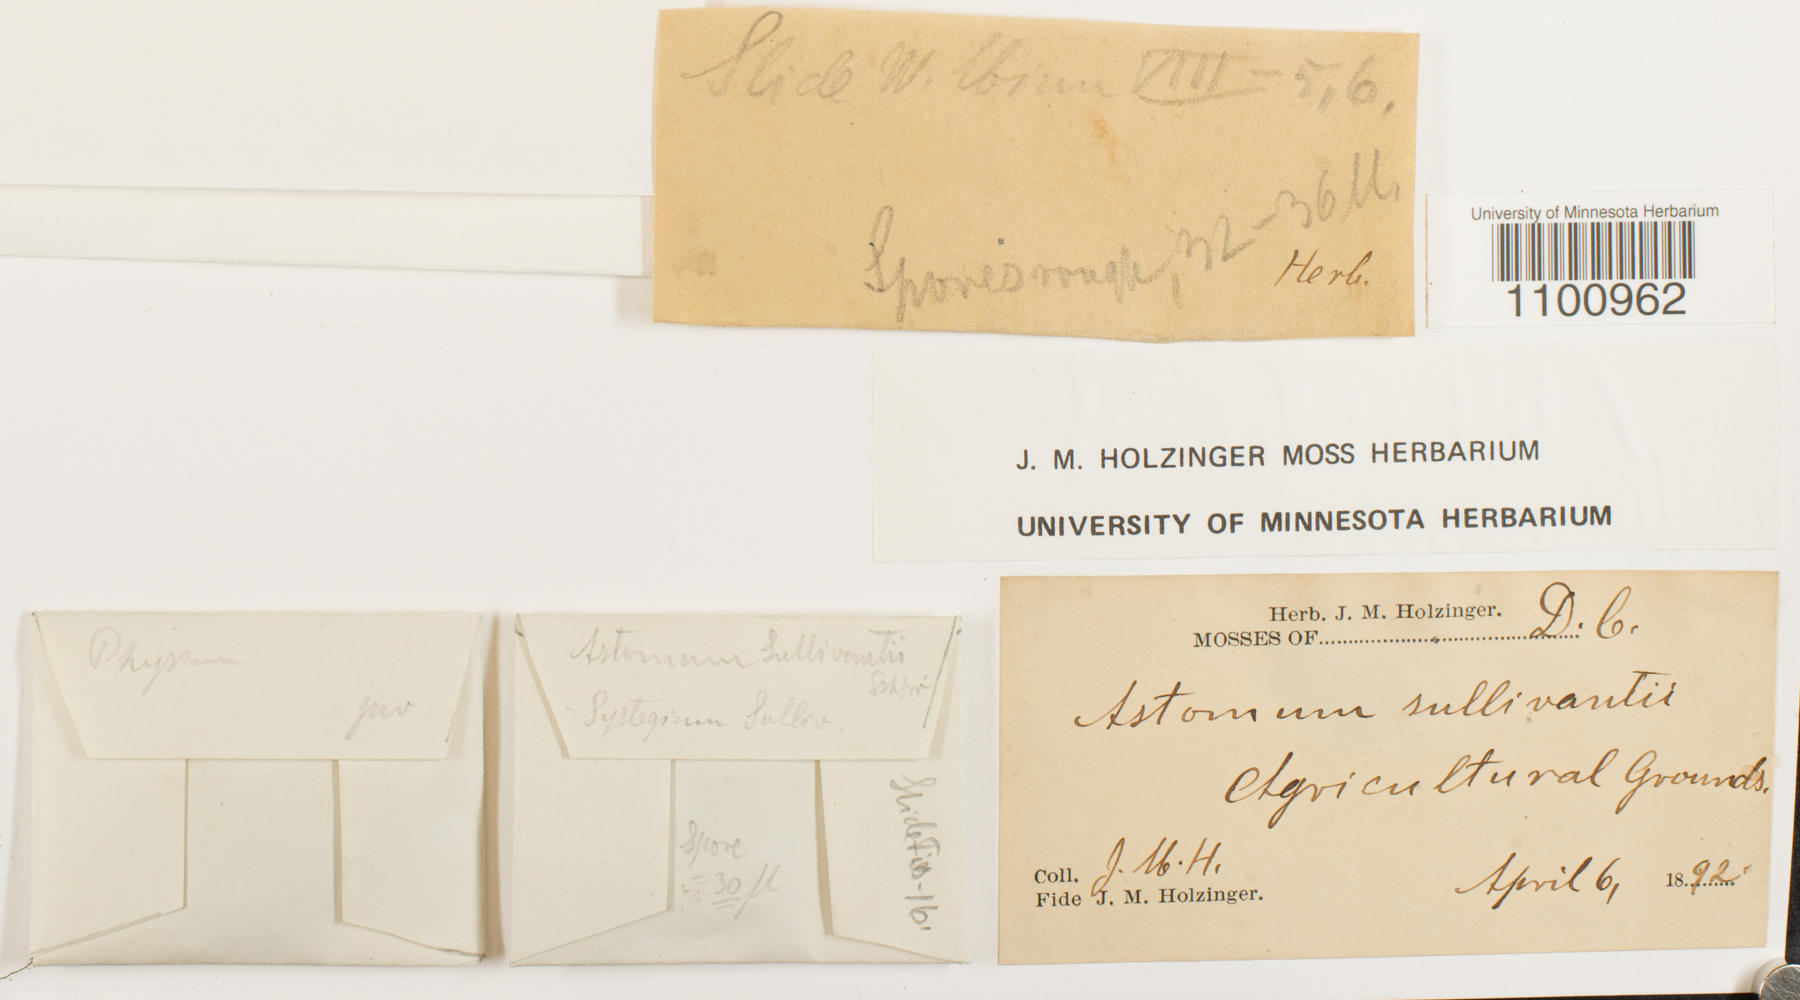 Slide W. Album VIII - 5, 6.
Spores rough, 32-36 µ.
Herb.
University of Minnesota Herbarium
1100962
J. M. HOLZINGER MOSS HERBARIUM
UNIVERSITY OF MINNESOTA HERBARIUM
Physcom
juv
Astomum Sullivantii
Schpr
- Systegium Sulliv.
Spore
= 30 µ
Herb. J. M. Holzinger.
MOSSES OF D. C.
Astomum sullivantii
Agricultural Grounds.
Coll. J. M. H.
Fide J. M. Holzinger.
April 6, 1892.